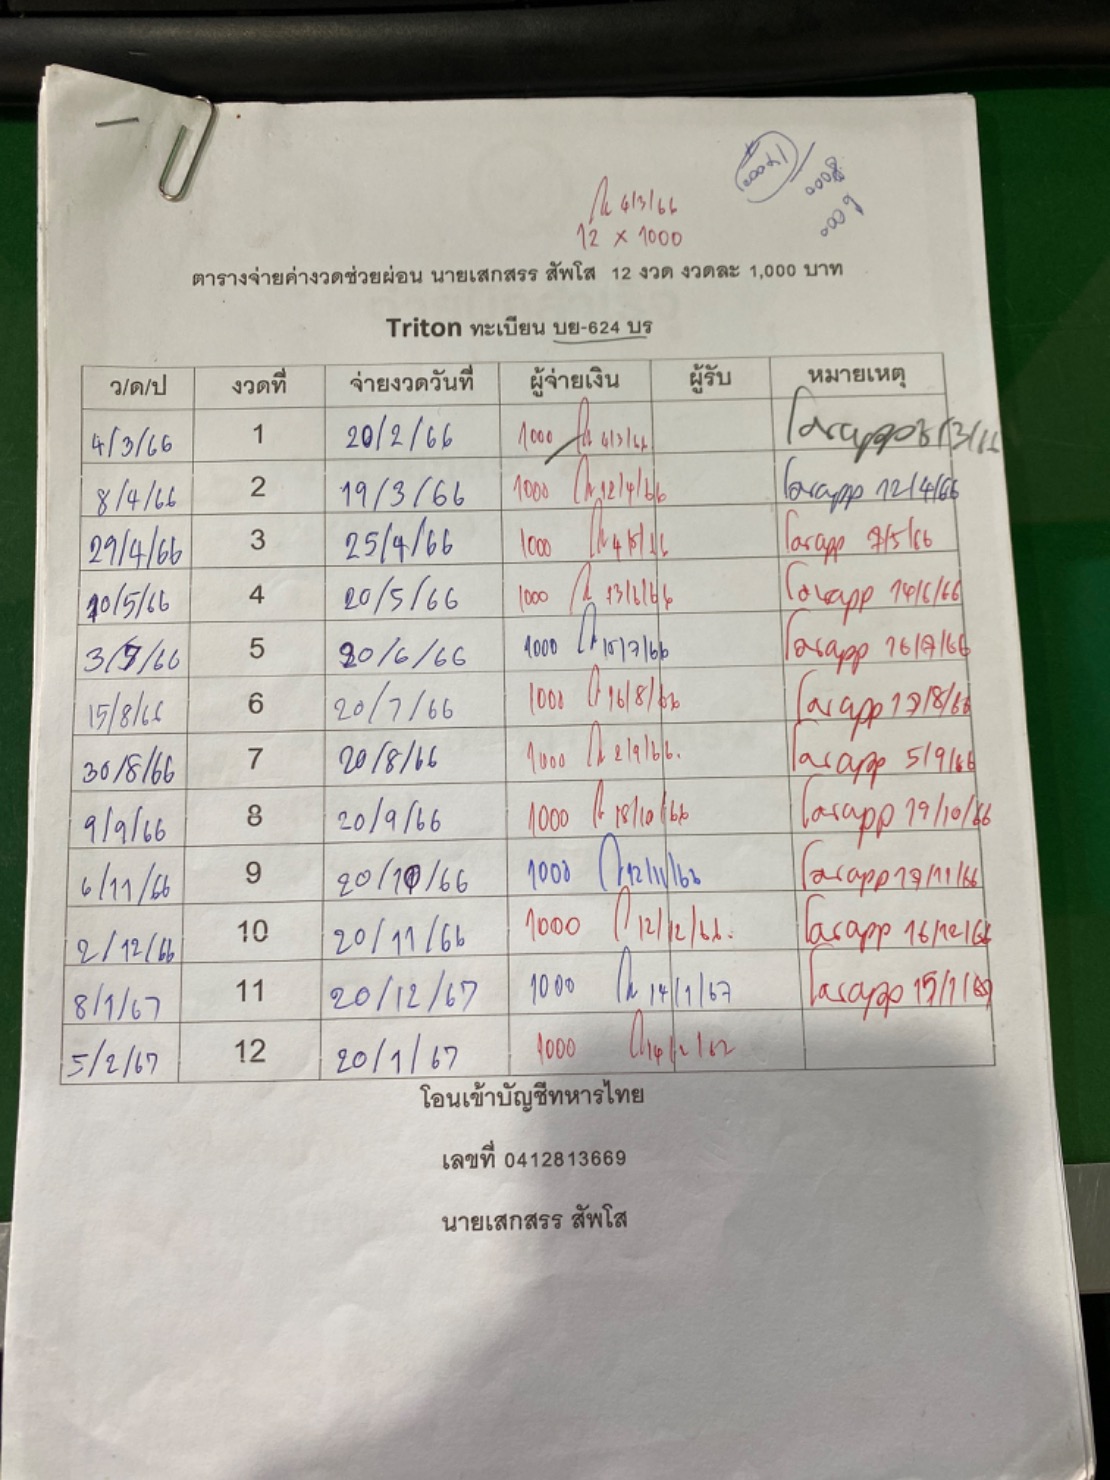 4/3/66
12 x 1000
ตารางจ่ายค่างวดช่วยผ่อน นายเสกสรร สัพโส 12 งวด งวดละ 1,000 บาท
Triton ทะเบียน บย-624 บร
ว/ด/ป งวดที่ จ่ายงวดวันที่ ผู้จ่ายเงิน ผู้รับ หมายเหตุ
4/3/66 1 20/2/66 1000 4/3/66 โอนapp
8/4/66 2 19/3/66 1000 12/4/66 โอนapp 12/4/66
29/4/66 3 25/4/66 1000 โอนapp 7/5/66
20/5/66 4 20/5/66 1000 13/6/66 โอนapp 14/6/66
5 20/6/66 1000 15/7/66 โอนapp 16/7/66
15/8/66 6 20/7/66 1000 16/8/66 โอนapp 17/8/66
30/8/66 7 20/8/66 1000 2/9/66. โอนapp 5/9/66
9/9/66 8 20/9/66 1000 18/10/66 โอนapp 19/10/66
6/11/66 9 20/10/66 1000 12/11/66 โอนapp 17/11/66
2/12/66 10 20/11/66 1000 12/12/66. โอนapp 16/12/66
8/1/67 11 20/12/67 1000 14/1/67 โอนapp
5/2/67 12 20/1/67 1000
โอนเข้าบัญชีทหารไทย
เลขที่ 0412813669
นายเสกสรร สัพโส